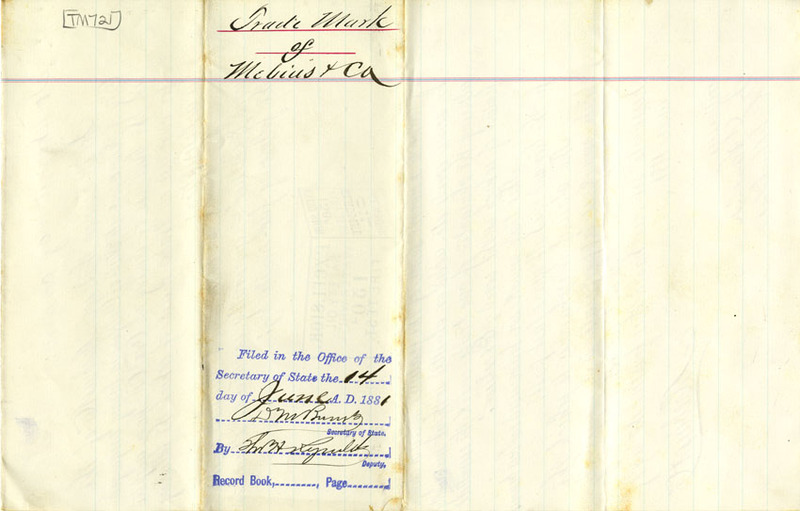 [TM 721]
Trade Mark
of
Mebius & Co
Filed in the Office of the
Secretary of State the 14
day of June A. D. 1881
D M Burns
Secretary of State.
By Thos H Reynolds
Deputy.
Record Book, ........, Page........